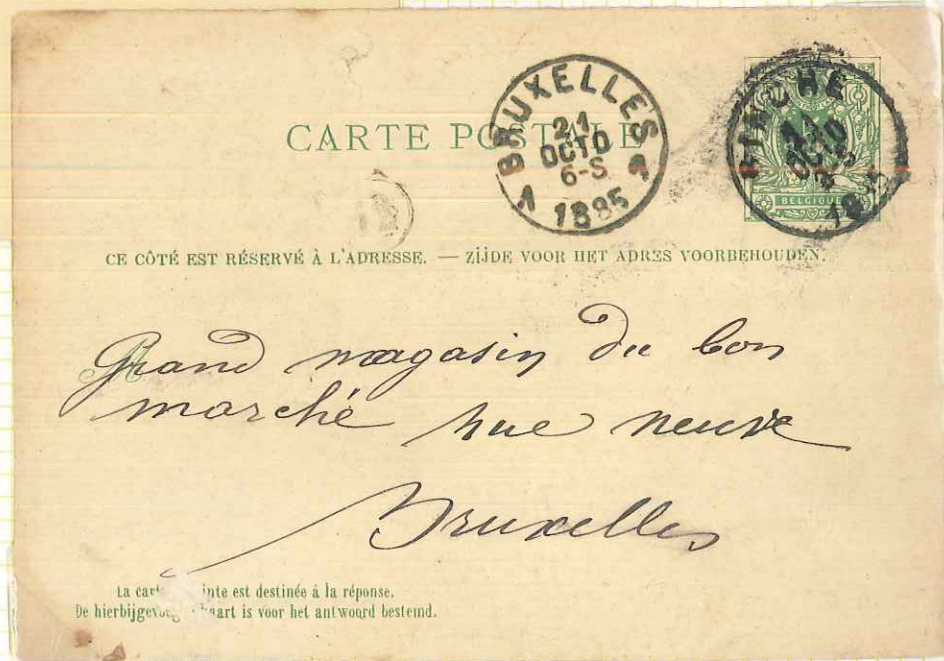 CARTE POSTALE
BRUXELLES
21
OCTO
6-S
1 1885 1
BINCHE
OCTO
18
BELGIQUE
CE CÔTÉ EST RÉSERVÉ À L'ADRESSE. — ZIJDE VOOR HET ADRES VOORBEHOUDEN.
A
Grand magasin du bon
marché rue neuve
Bruxelles
La est destinée à la réponse.
De is voor het antwoord bestemd.